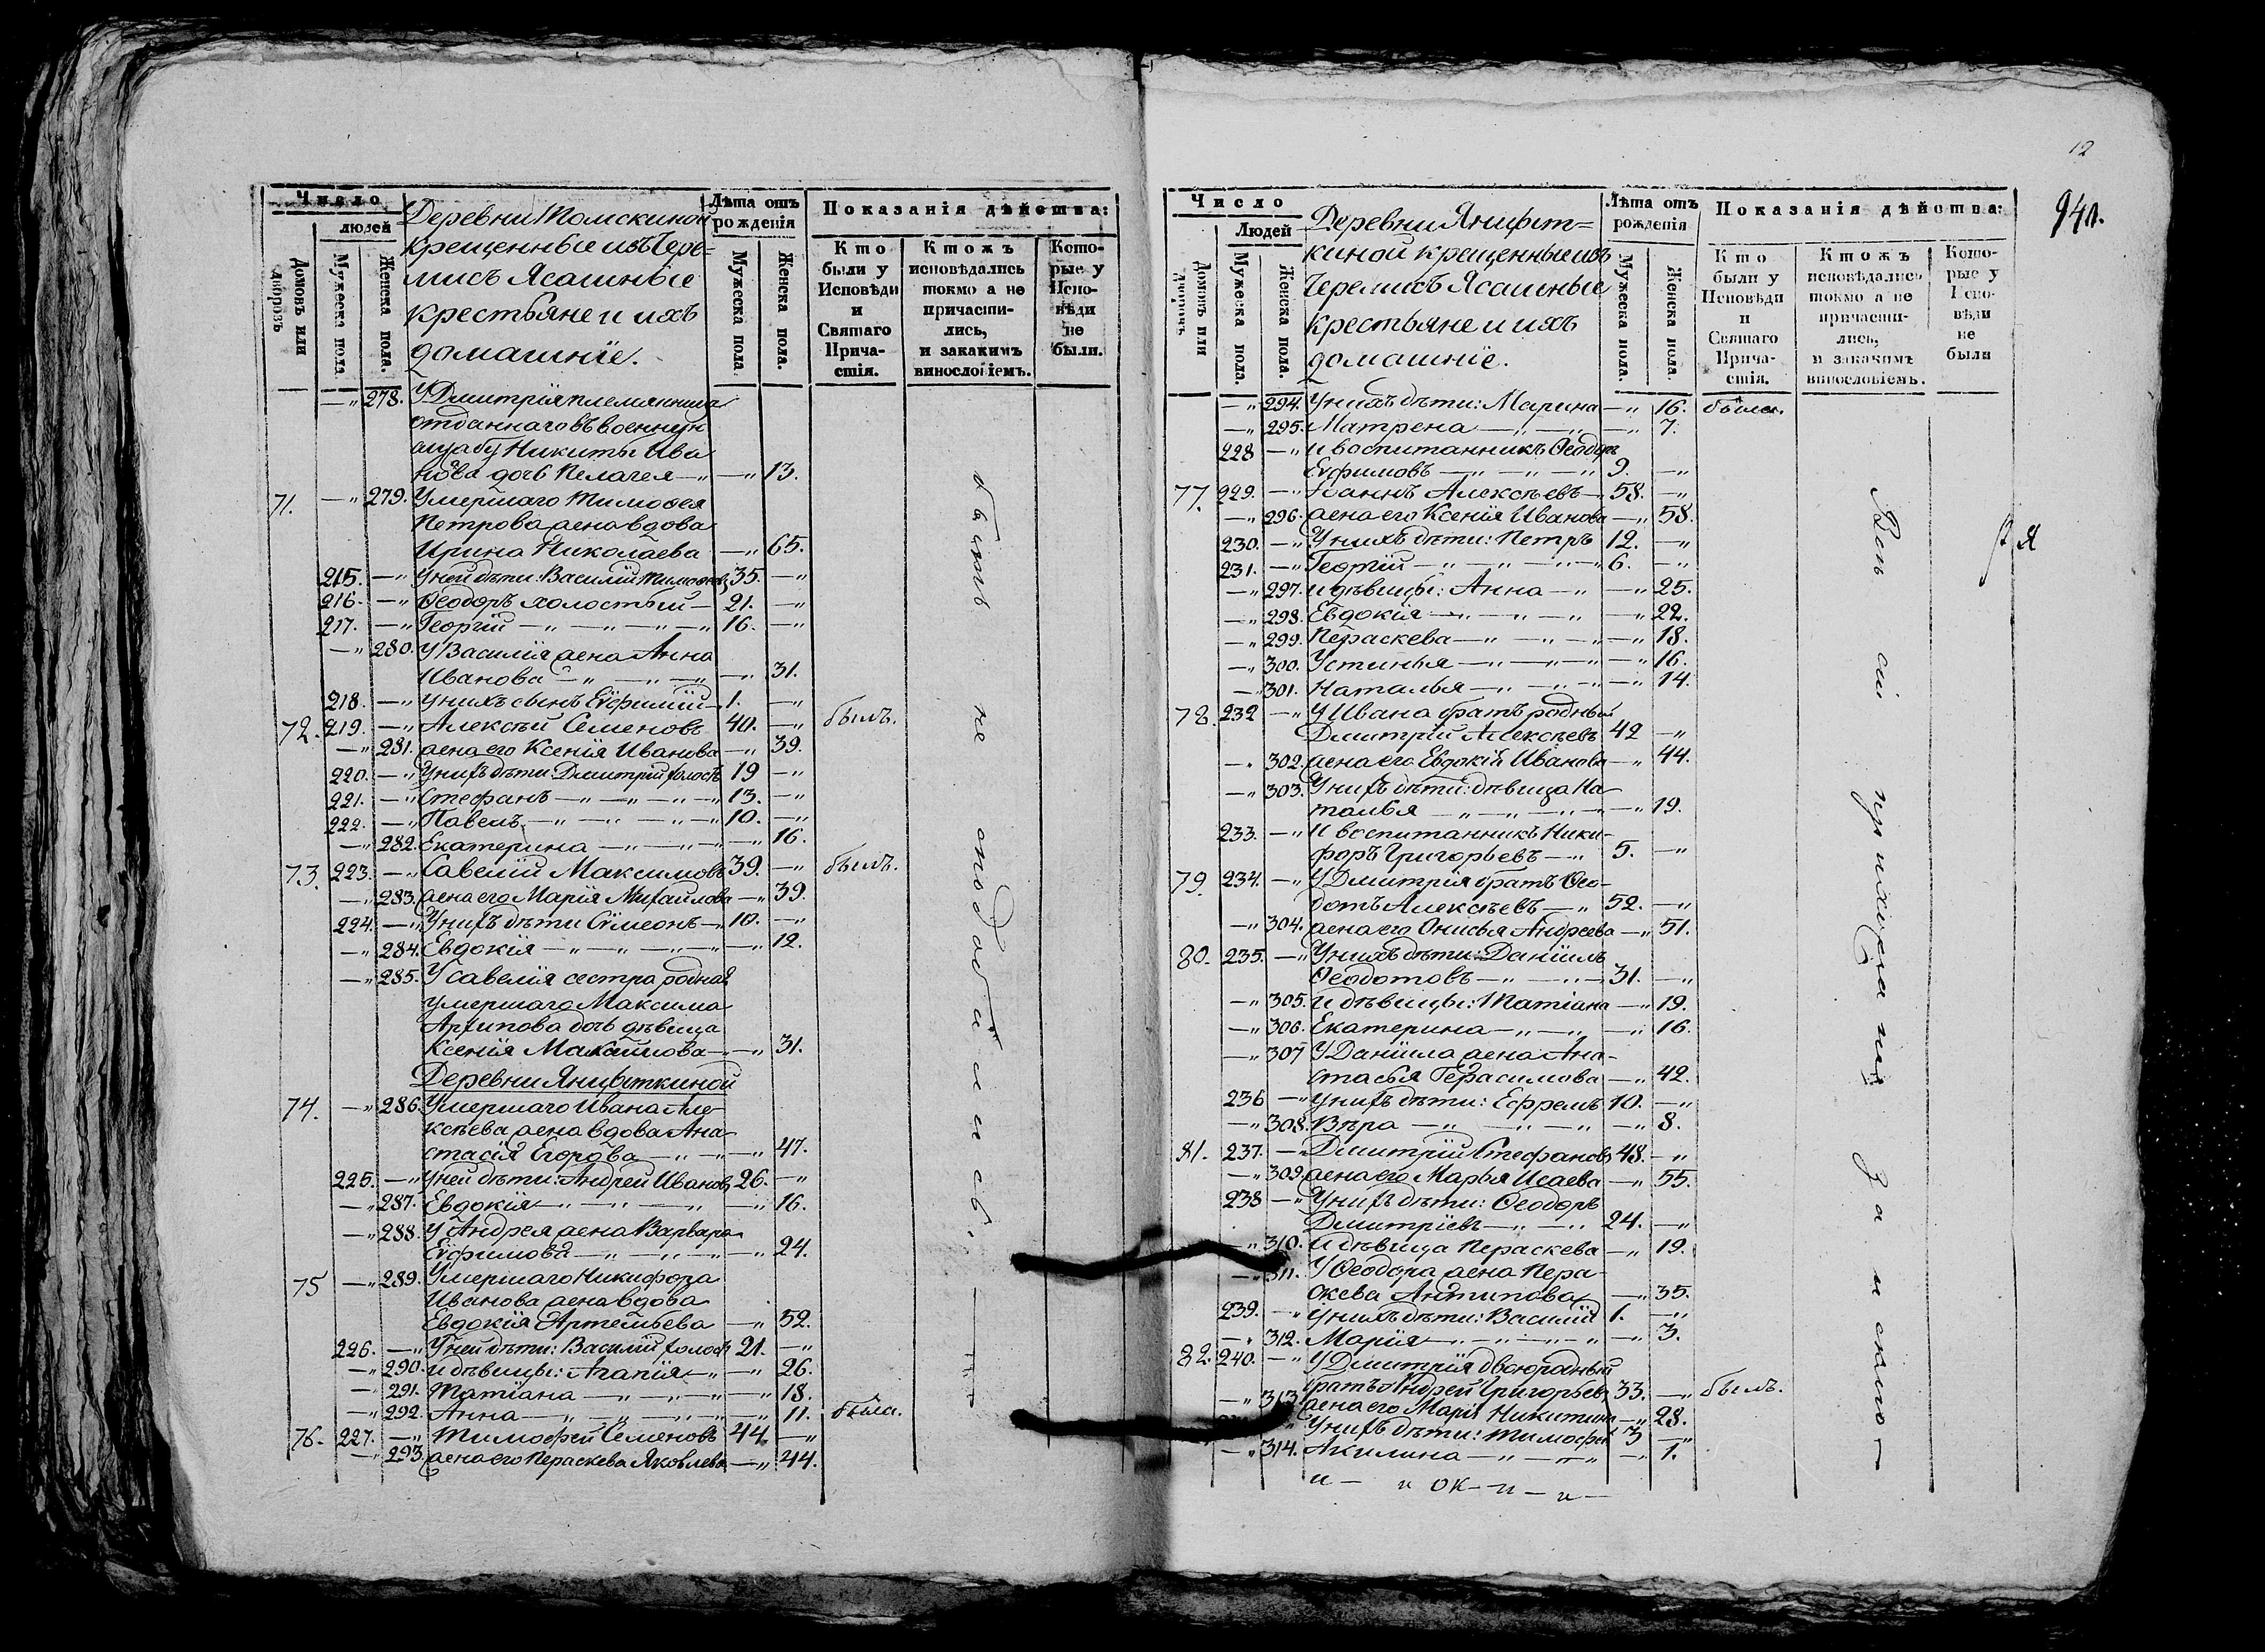 Число
людей
Домовъ или дворовъ
Мужеска пола.
Женска пола.
Деревни Томскиной
крещенные изъ Чере-
мисъ Ясашные
крестьяне и ихъ
домашнїе.
Лѣта отъ рожденія
Мужеска пола.
Женска пола.
Показанія дѣйства:
Кто были у Исповѣди и Святаго Причастія.
Ктожъ исповѣдались токмо а не причастились, и закакимъ винословіемъ.
Которые у Исповѣди не были.
—„ 278. У Дмитрїя племянника
отданнаго въ военную
службу Никиты Ива
нова дочь Пелагея —„ —„ 13.
71. —„ 279. Умершаго Тимофея
Петрова жена вдова
Ирина Николаева —„ 65.
215. —„ У ней дѣти: Василїй Тимофеевъ 35. —„
216. —„ Ѳеодоръ холостый — 21. —„
217. —„ Георгїй —„ —„ —„ —„ 16. —„
—„ 280. У Василїя жена Анна
Иванова —„ —„ —„ —„ 31.
218. —„ У нихъ сынъ Еѵфимїй — 1. —„
72. 219. —„ Алексѣй Семеновъ 40. —„ былъ.
—„ 281. жена его Ксенїя Иванова —„ 39.
220. —„ У нихъ дѣти Дмитрїй холостъ 19 —„
221. —„ Стефанъ —„ —„ —„ —„ 13. —„
222. —„ Павелъ —„ —„ —„ —„ 10. —„
—„ 282. Екатерина —„ —„ —„ —„ 16.
73. 223. —„ Савелїй Максимовъ 39. —„ былъ.
—„ 283. жена его Марїя Михайлова —„ 39.
224. —„ У нихъ дѣти Сѵмеонъ —„ 10. —„
—„ 284. Евдокїя —„ —„ —„ —„ —„ 12.
—„ 285. У Савелїя сестра родная
умершаго Максима
Архипова дочь дѣвица
Ксенїя Максимова —„ —„ 31.
Деревни Яништкиной
74. —„ 286. Умершаго Ивана Але-
ксѣева жена вдова Ана
стасїя Егорова —„ —„ —„ 47.
225. —„ У ней дѣти: Андрей Ивановъ 26. —„
—„ 287. Евдокїя —„ —„ —„ —„ 16.
—„ 288. У Андрея жена Варвара
Еѵфимова —„ —„ —„ —„ 24.
75 —„ 289. Умершаго Никифора
Иванова жена вдова
Евдокїя Артемьева —„ 52.
226. —„ У ней дѣти: Василїй холостъ 21. —„
—„ 290. и дѣвицы: Агапїя —„ —„ 26.
—„ 291. Татїана —„ —„ —„ —„ 18.
—„ 292. Анна —„ —„ —„ —„ —„ 11. была.
76. 227. —„ Тимофей Семеновъ 44. —„
—„ 293. жена его Пераскева Яковлева —„ 44.
не сподобились.
12
940.
Число
Людей
Домовъ или дворовъ
Мужеска пола.
Женска пола.
Деревни Яништ=
киной крещенные изъ
Черемисъ Ясашные
крестьяне и ихъ
домашнїе.
Лѣта отъ рожденія
Мужеска пола.
Женска пола.
Показанія дѣйства:
Кто были у Исповѣди и Святаго Причастія.
Ктожъ исповѣдались токмо а не причастились, и закакимъ винословіемъ.
Которые у Исповѣди не были
—„ 294. У нихъ дѣти: Марина —„ 16. была.
—„ 295. Матрена —„ —„ —„ 7.
228 —„ и воспитанникъ Ѳеодоръ
Еѵфимовъ —„ —„ —„ 9. —„
77. 229. —„ Іоаннъ Алексѣевъ —„ 58. —„
—„ 296. жена его Ксенїя Иванова —„ 58.
230. —„ У нихъ дѣти: Петръ 12. —„
231. —„ Георгїй —„ —„ —„ —„ 6. —„
—„ 297. и дѣвицы: Анна —„ —„ 25.
—„ 298. Евдокїя —„ —„ —„ —„ 22.
—„ 299. Пераскева —„ —„ —„ —„ 18.
—„ 300. Устинья —„ —„ —„ —„ 16.
—„ 301. Наталья —„ —„ —„ —„ 14.
78. 232 —„ У Ивана братъ родный
Дмитрїй Алексѣевъ 42 —„
—„ 302. жена его Евдокїя Иванова —„ 44.
—„ 303. У нихъ дѣти: дѣвица На
талья —„ —„ —„ —„ 19.
233. —„ и воспитанникъ Ники-
форъ Григорьевъ —„ 5. —„
79. 234. —„ У Дмитрїя братъ Ѳео-
дотъ Алексѣевъ —„ 52. —„
—„ 304. жена его Онисья Андреева —„ 51.
80. 235. —„ У нихъ дѣти: Данїилъ
Ѳеодотовъ —„ —„ 31. —„
—„ 305. и дѣвицы: Татїана —„ 19.
—„ 306. Екатерина —„ —„ —„ 16.
—„ 307 У Данїила жена Ана-
стасья Герасимова —„ 42.
236 —„ У нихъ дѣти: Ефремъ 10. —„
—„ 308. Вѣра —„ —„ —„ —„ 8.
81. 237. —„ Дмитрїй Стефановъ 48. —„
—„ 309. жена его Марья Исаева —„ 55.
238 —„ У нихъ дѣти: Ѳеодоръ
Дмитрїевъ —„ —„ 24. —„
—„ 310. и дѣвица Пераскева —„ 19.
—„ 311. У Ѳеодора жена Пера-
скева Антипова —„ 35.
239. —„ У нихъ дѣти: Василїй 1. —„
—„ 312. Марїя —„ —„ —„ —„ 3.
82. 240. —„ У Дмитрїя двоюродный
братъ Андрей Григорьевъ 33. —„ былъ.
—„ 313. жена его Марїя Никитина —„ 28.
У нихъ дѣти: Тимофей 3 —„
—„ 314. Акилина —„ —„ —„ 1.
Вси сїи прихожаня за